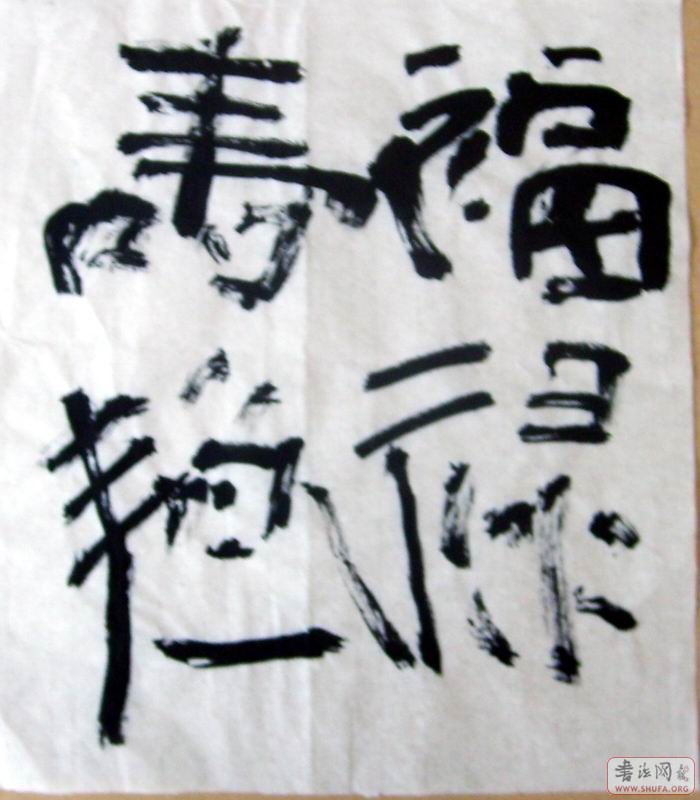 福禄
壽
书法网
WWW.SHUFA.ORG